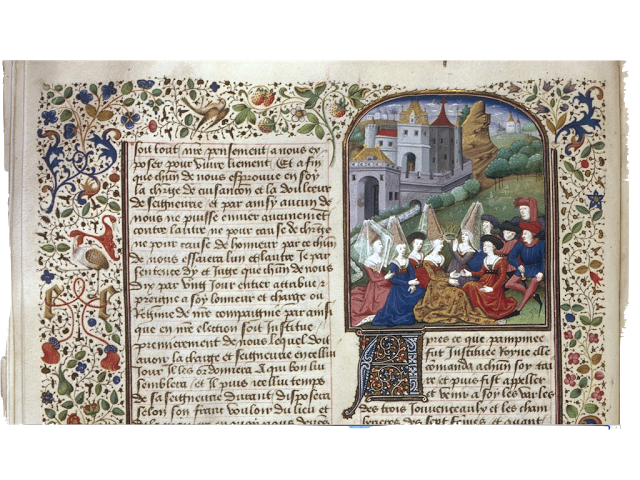 soit tout mie pensement a nous ex
poser pour vivre liement Et a fin
que chun de nous espreuve en soy
la charge de cusancon et la doulceur
de seigneurie et par ainsy aucun de
nous ne puisse envier aucunement
contre lautre ne pour cause de charge
ne pour cause de honneur par ce chun
de nous essaiera lun et lautre Je par
sentence dy et Juge que chun de nous
dix par Ung Jour entier attribue
preigne a soy lonneur et charge ou
Regime de nre compaignie par ainsi
que en nre election soit Institue
premierement de nous lequel doit
avoir la charge et seigneurie en cellui
Jour Et les donnera A qui bon lui
semblera Et Je puis icellui temps
de sa seigneurie durant disposera
selon son franc vouloir du lieu et
Apres ce que pampinee
fut Instituee Royne elle
comanda a chun soy tai
re et puis fist appeller
et venir a soy les varles
des trois Jouvenceaulx et les cham
berieres des sept femes et quant